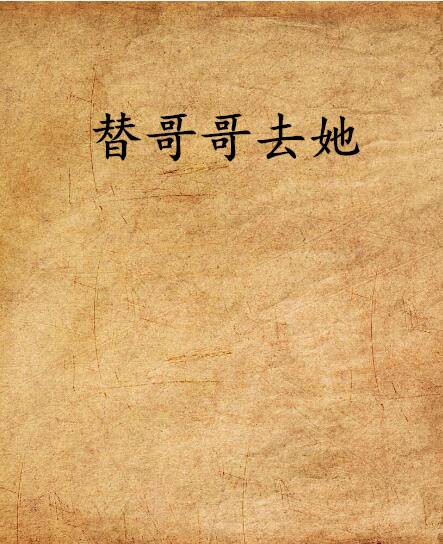 替哥哥去她